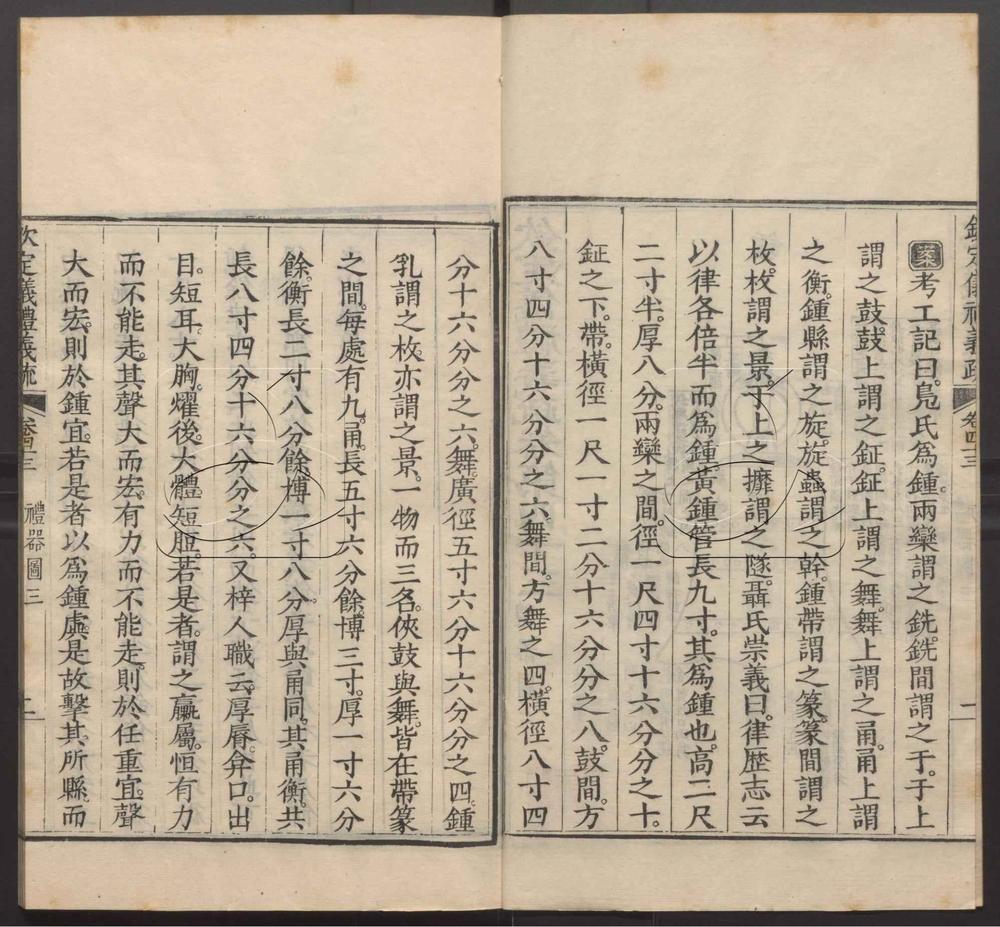 欽定儀禮義疏 卷四十三 一
案考工記曰。鳧氏為鍾。兩欒謂之銑。銑間謂之于。于上
謂之鼓。鼓上謂之鉦。鉦上謂之舞。舞上謂之甬。甬上謂
之衡。鍾縣謂之旋。旋蟲謂之幹。鍾帶謂之篆。篆間謂之
枚。枚謂之景。于上之攠謂之隧。聶氏崇義曰。律歴志云
以律各倍半而為鍾。黃鍾管長九寸。其為鍾也。高二尺
二寸半。厚八分。兩欒之間。徑一尺四寸十六分分之十。
鉦之下。帶。橫徑一尺一寸二分十六分分之八。鼓間。方
八寸四分十六分分之六。舞間。方舞之四。橫徑八寸四
分十六分分之六。舞。廣徑五寸六分十六分分之四。鍾
乳謂之枚。亦謂之景。一物而三名。俠鼓與舞。皆在帶篆
之間。每處有九。甬。長五寸六分餘。博三寸。厚一寸六分
餘。衡長二寸八分餘。博一寸八分。厚與甬同。其甬衡。共
長八寸四分十六分分之六。又梓人職云。厚脣弇口。出
目。短耳。大胸。燿後。大體短脰。若是者。謂之臝屬。恒有力
而不能走。其聲大而宏。有力而不能走。則於任重宜。聲
大而宏。則於鍾宜。若是者以為鍾虡。是故擊其所縣。而
欽定儀禮義疏 卷四十三 禮器圖三 二